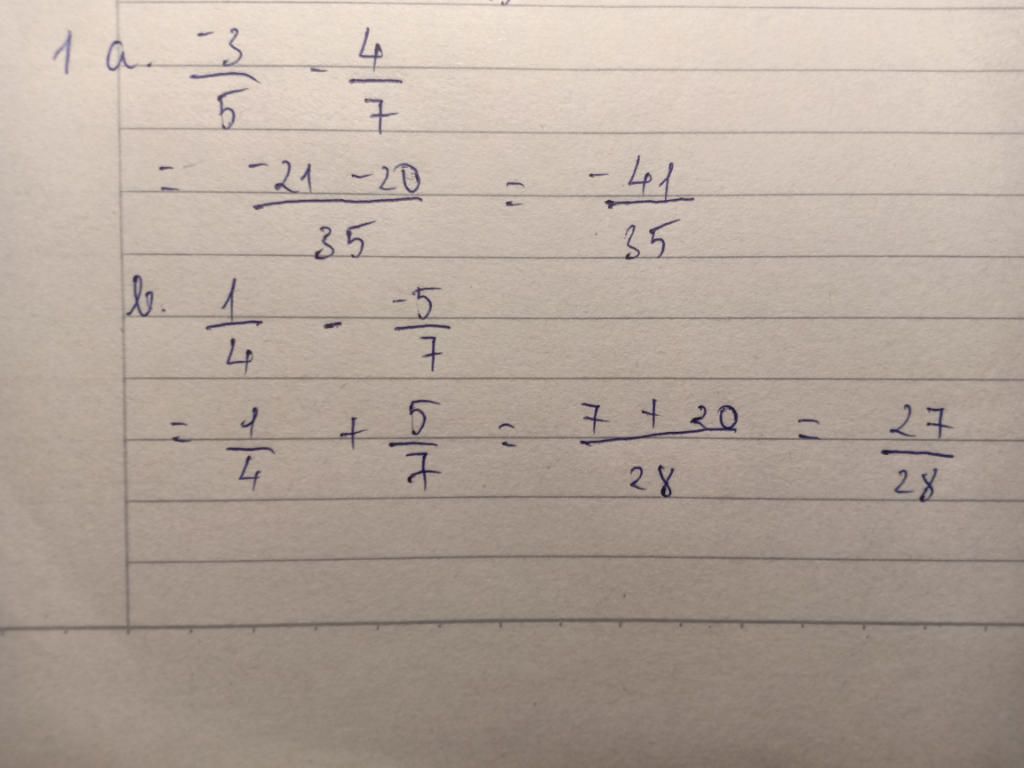 1 a. -3/5 - 4/7
= -21 -20/35 = -41/35
b. 1/4 - -5/7
= 1/4 + 5/7 = 7 + 20/28 = 27/28